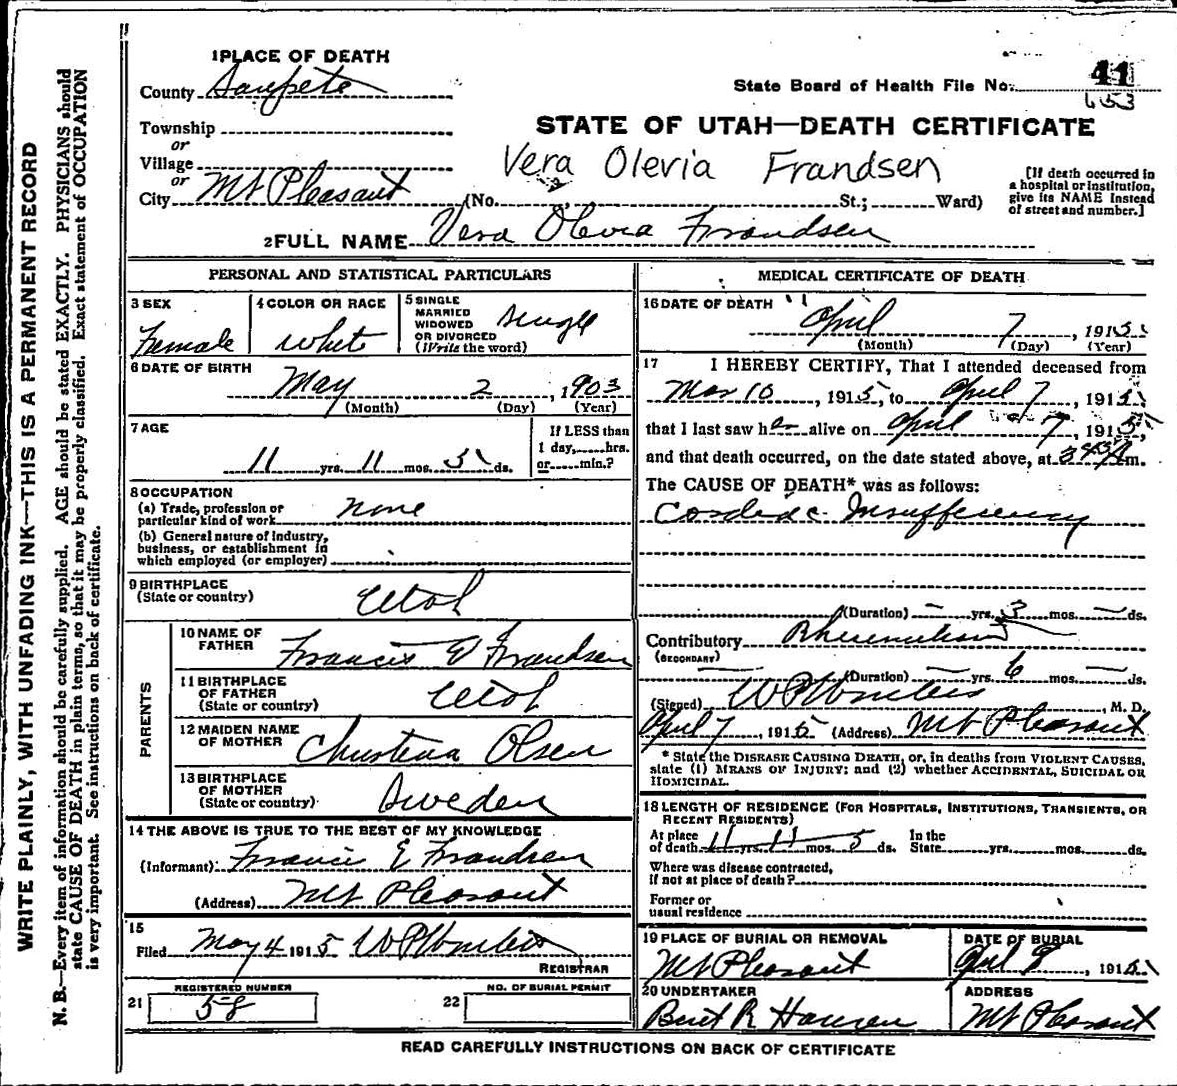 WRITE PLAINLY, WITH UNFADING INK—THIS IS A PERMANENT RECORD
N. B.—Every item of information should be carefully supplied. AGE should be stated EXACTLY. PHYSICIANS should
state CAUSE OF DEATH in plain terms, so that it may be properly classified. Exact statement of OCCUPATION
is very important. See instructions on back of certificate.
1 PLACE OF DEATH
County Sanpete
Township
or
Village
or
City Mt Pleasant
State Board of Health File No. 41
653
STATE OF UTAH—DEATH CERTIFICATE
Vera Olevia Frandsen
(No. St.; Ward)
[If death occurred in
a hospital or institution,
give its NAME instead
of street and number.]
2 FULL NAME Vera Olevia Frandsen
PERSONAL AND STATISTICAL PARTICULARS
3 SEX
Female
4 COLOR OR RACE
White
5 SINGLE
MARRIED
WIDOWED
OR DIVORCED
(Write the word)
Single
6 DATE OF BIRTH
May 2, 1903
(Month) (Day) (Year)
7 AGE
11 yrs. 11 mos. 5 ds.
If LESS than
1 day, hrs.
or min.?
8 OCCUPATION
(a) Trade, profession or
particular kind of work none
(b) General nature of Industry,
business, or establishment in
which employed (or employer)
9 BIRTHPLACE
(State or country)
Utah
PARENTS
10 NAME OF
FATHER
Francis E Frandsen
11 BIRTHPLACE
OF FATHER
(State or country)
Utah
12 MAIDEN NAME
OF MOTHER
Christena Olsen
13 BIRTHPLACE
OF MOTHER
(State or country)
Sweden
14 THE ABOVE IS TRUE TO THE BEST OF MY KNOWLEDGE
(Informant) Francis E Frandsen
(Address) Mt Pleasant
15
Filed May 4 1915
REGISTRAR
21
REGISTERED NUMBER
58
22
NO. OF BURIAL PERMIT
MEDICAL CERTIFICATE OF DEATH
16 DATE OF DEATH
April 7, 1915
(Month) (Day) (Year)
17 I HEREBY CERTIFY, That I attended deceased from
Mar 10, 1915, to April 7, 1915,
that I last saw her alive on April 7, 1915,
and that death occurred, on the date stated above, at m.
The CAUSE OF DEATH* was as follows:
Cardiac Insufficiency
(Duration) — yrs. 3 mos. — ds.
Contributory Rheumatism
(SECONDARY)
(Duration) — yrs. 6 mos. — ds.
(Signed) , M. D.
April 7, 1915 (Address) Mt Pleasant
* State the DISEASE CAUSING DEATH, or, in deaths from VIOLENT CAUSES,
state (1) MEANS OF INJURY; and (2) whether ACCIDENTAL, SUICIDAL OR
HOMICIDAL.
18 LENGTH OF RESIDENCE (FOR HOSPITALS, INSTITUTIONS, TRANSIENTS, OR
RECENT RESIDENTS)
At place
of death 11 yrs. 11 mos. 5 ds.
In the
State yrs. mos. ds.
Where was disease contracted,
if not at place of death?
Former or
usual residence
19 PLACE OF BURIAL OR REMOVAL
Mt Pleasant
DATE OF BURIAL
April 9, 1915
20 UNDERTAKER
Bent R Hansen
ADDRESS
Mt Pleasant
READ CAREFULLY INSTRUCTIONS ON BACK OF CERTIFICATE